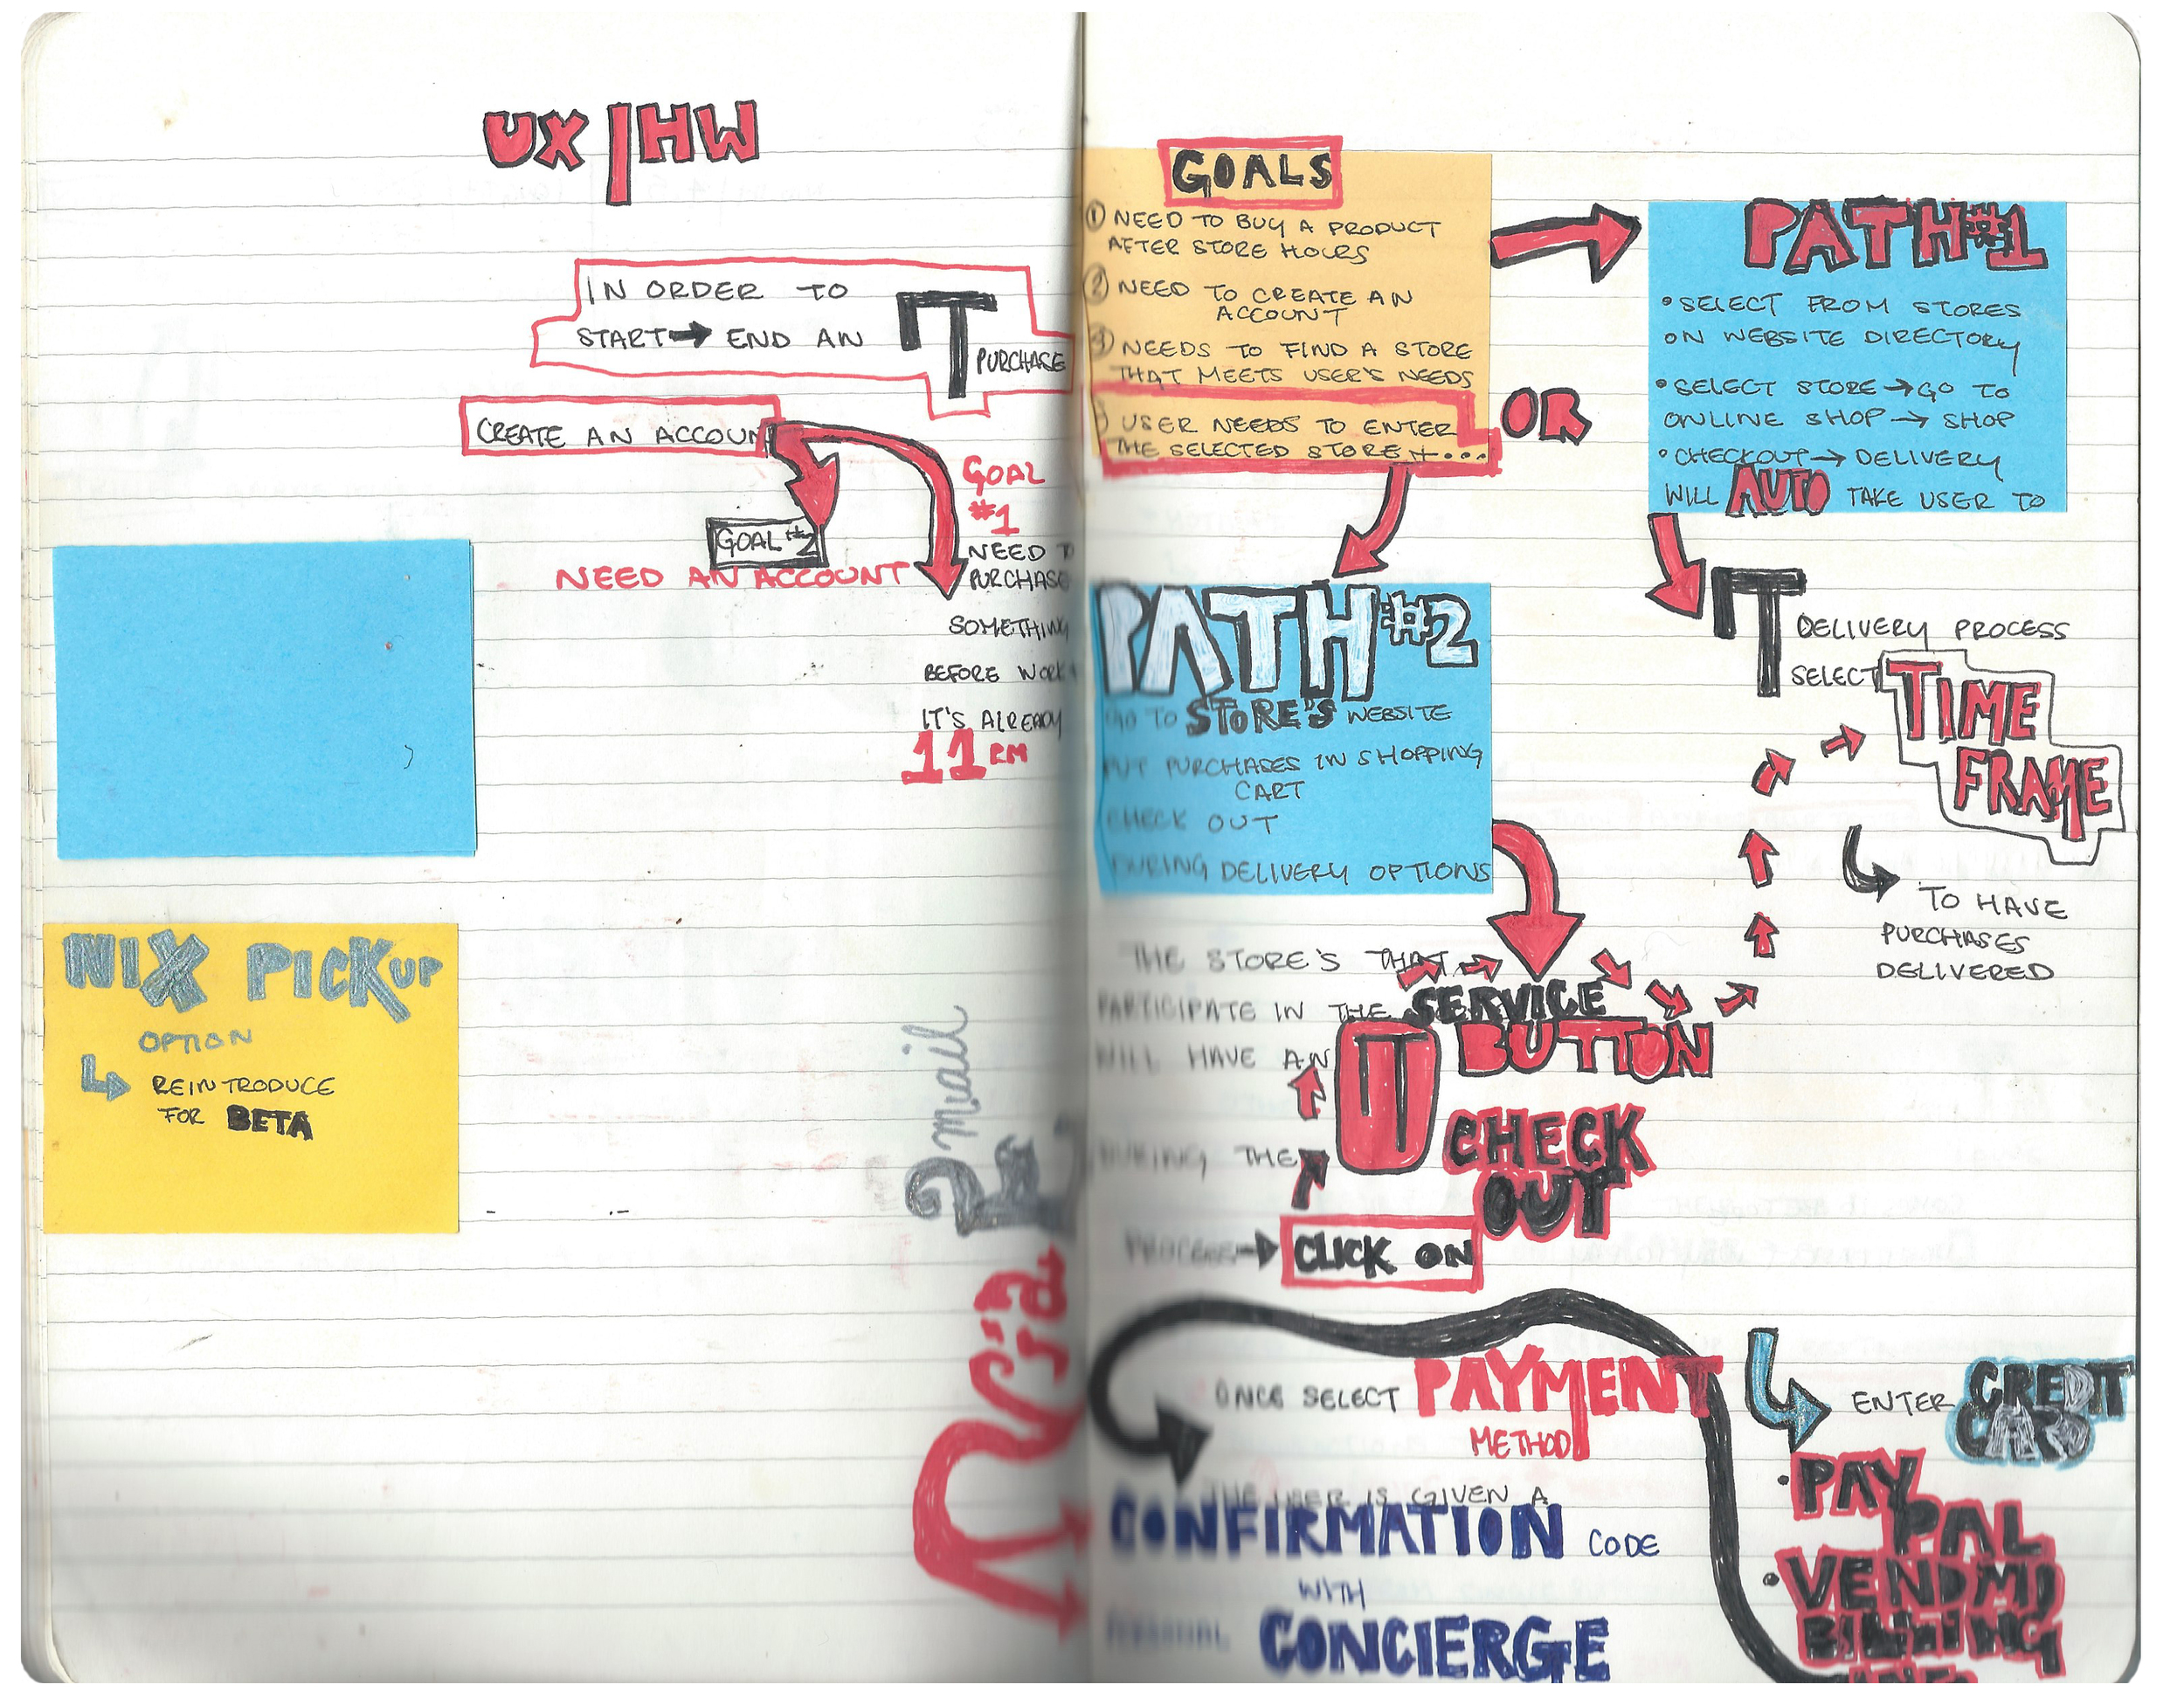 UX | HW
IN ORDER TO
START → END AN IT
PURCHASE
CREATE AN ACCOUN
GOAL #2
NEED AN ACCOUNT
GOAL
#1
NEED T
PURCHASE
SOMETHING
BEFORE WORK
IT'S ALREADY
11 PM
NIX PICKUP
OPTION
REINTRODUCE
FOR BETA
mail
GOALS
① NEED TO BUY A PRODUCT
AFTER STORE HOURS
② NEED TO CREATE AN
ACCOUNT
③ NEEDS TO FIND A STORE
THAT MEETS USER'S NEEDS
USER NEEDS TO ENTER
THE SELECTED STORE
OR
PATH #1
• SELECT FROM STORES
ON WEBSITE DIRECTORY
• SELECT STORE → GO TO
ONLINE SHOP → SHOP
• CHECKOUT → DELIVERY
WILL AUTO TAKE USER TO
IT
DELIVERY PROCESS
SELECT TIME
FRAME
TO HAVE
PURCHASES
DELIVERED
PATH #2
GO TO STORE'S WEBSITE
PUT PURCHASES IN SHOPPING
CART
CHECK OUT
DURING DELIVERY OPTIONS
THE STORE'S THAT
PARTICIPATE IN THE SERVICE
WILL HAVE AN IT BUTTON
DURING THE CHECK
OUT
PROCESS → CLICK ON
ONCE SELECT PAYMENT
METHOD
THE USER IS GIVEN A
CONFIRMATION CODE
WITH
PERSONAL CONCIERGE
ENTER CREDIT
CARD
• PAY
PAL
• VENDMO
BILLING